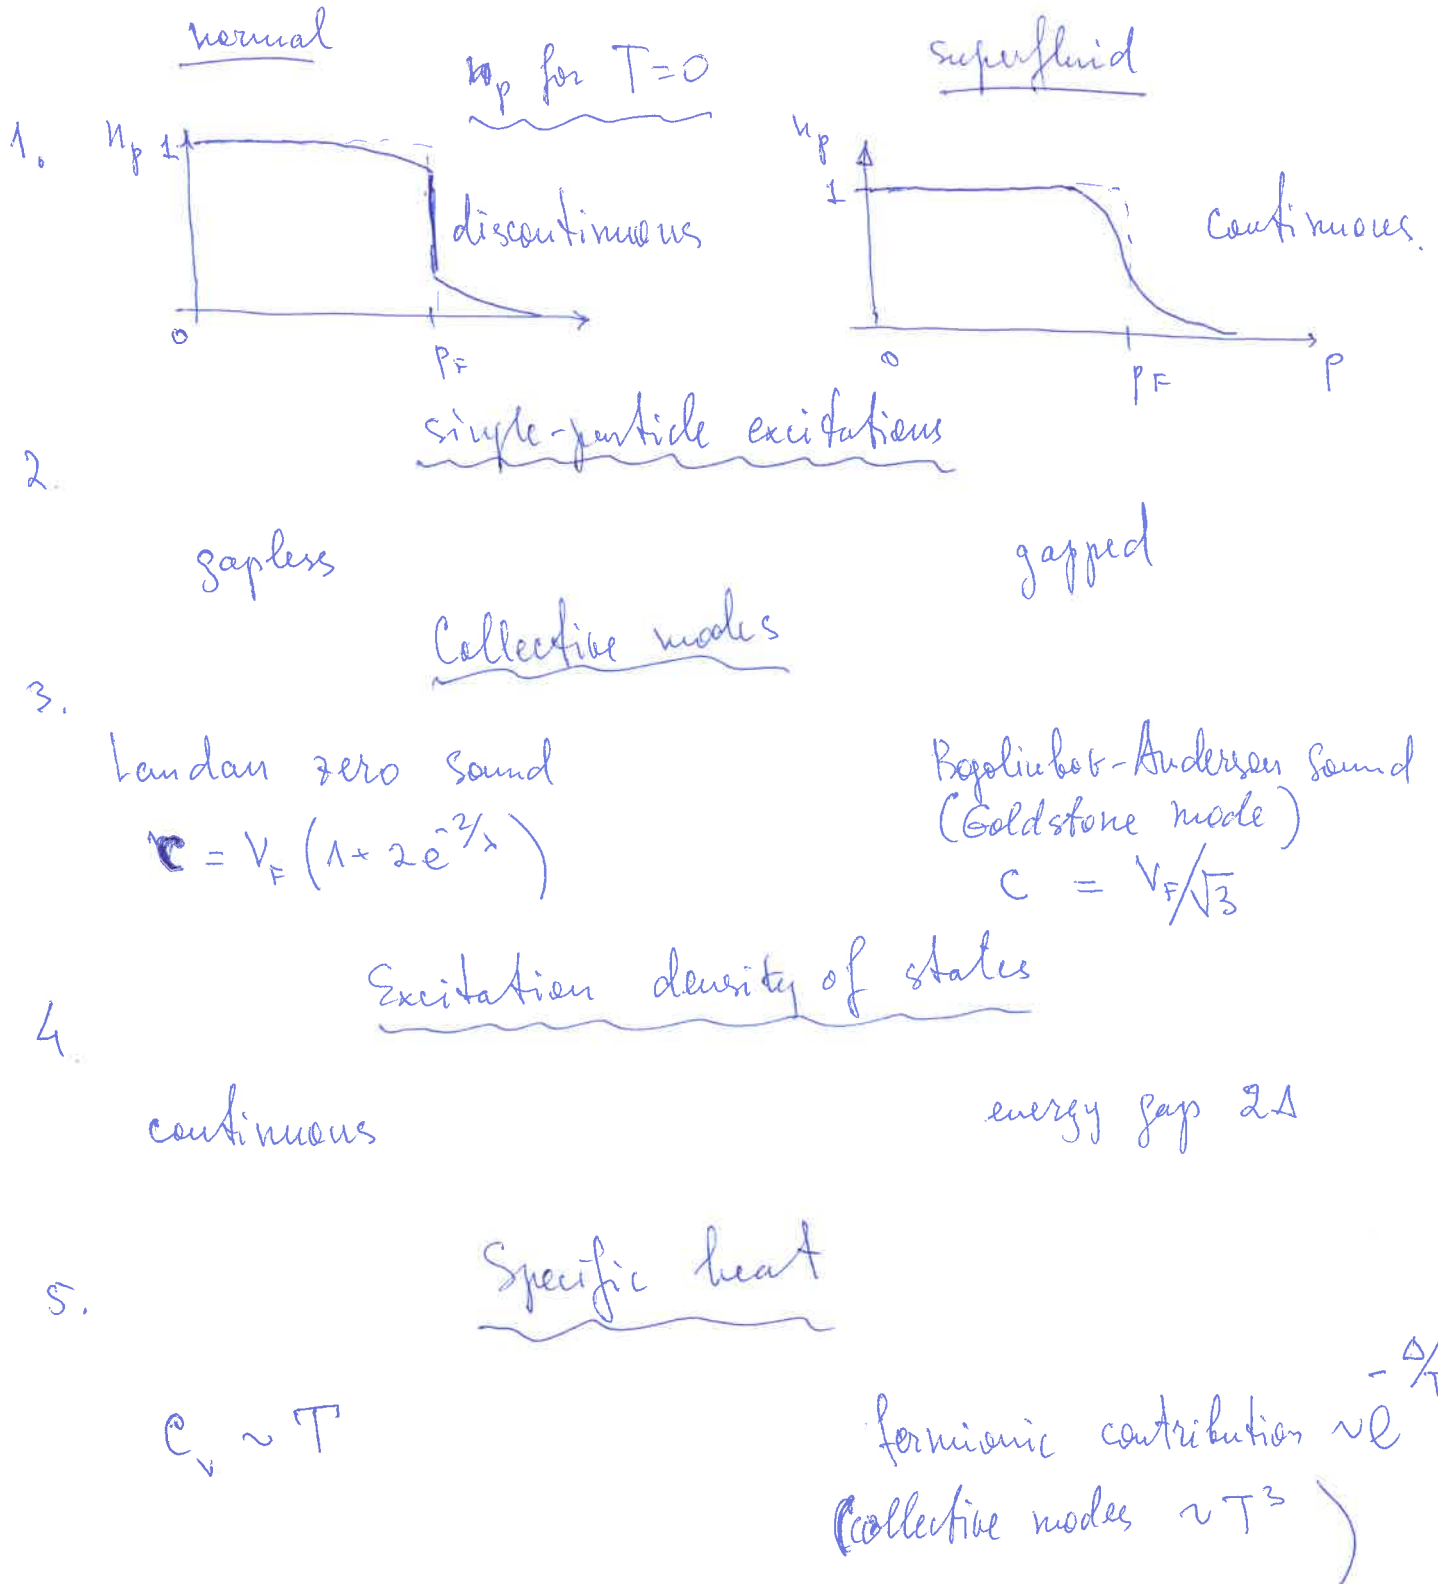 normal
n_p for T=0
superfluid
1.
n_p 1
discontinuous
0
p_F
n_p
1
continuous.
0
p_F
p
single-particle excitations
2.
gapless
gapped
Collective modes
3.
Landau zero sound
c = V_F (1+2e^{-2/λ})
Bogoliubov-Anderson sound
(Goldstone mode)
c = V_F/√3
Excitation density of states
4.
continuous
energy gap 2Δ
Specific heat
5.
C_v ~ T
fermionic contribution ~e^{-Δ/T}
(collective modes ~T^3)